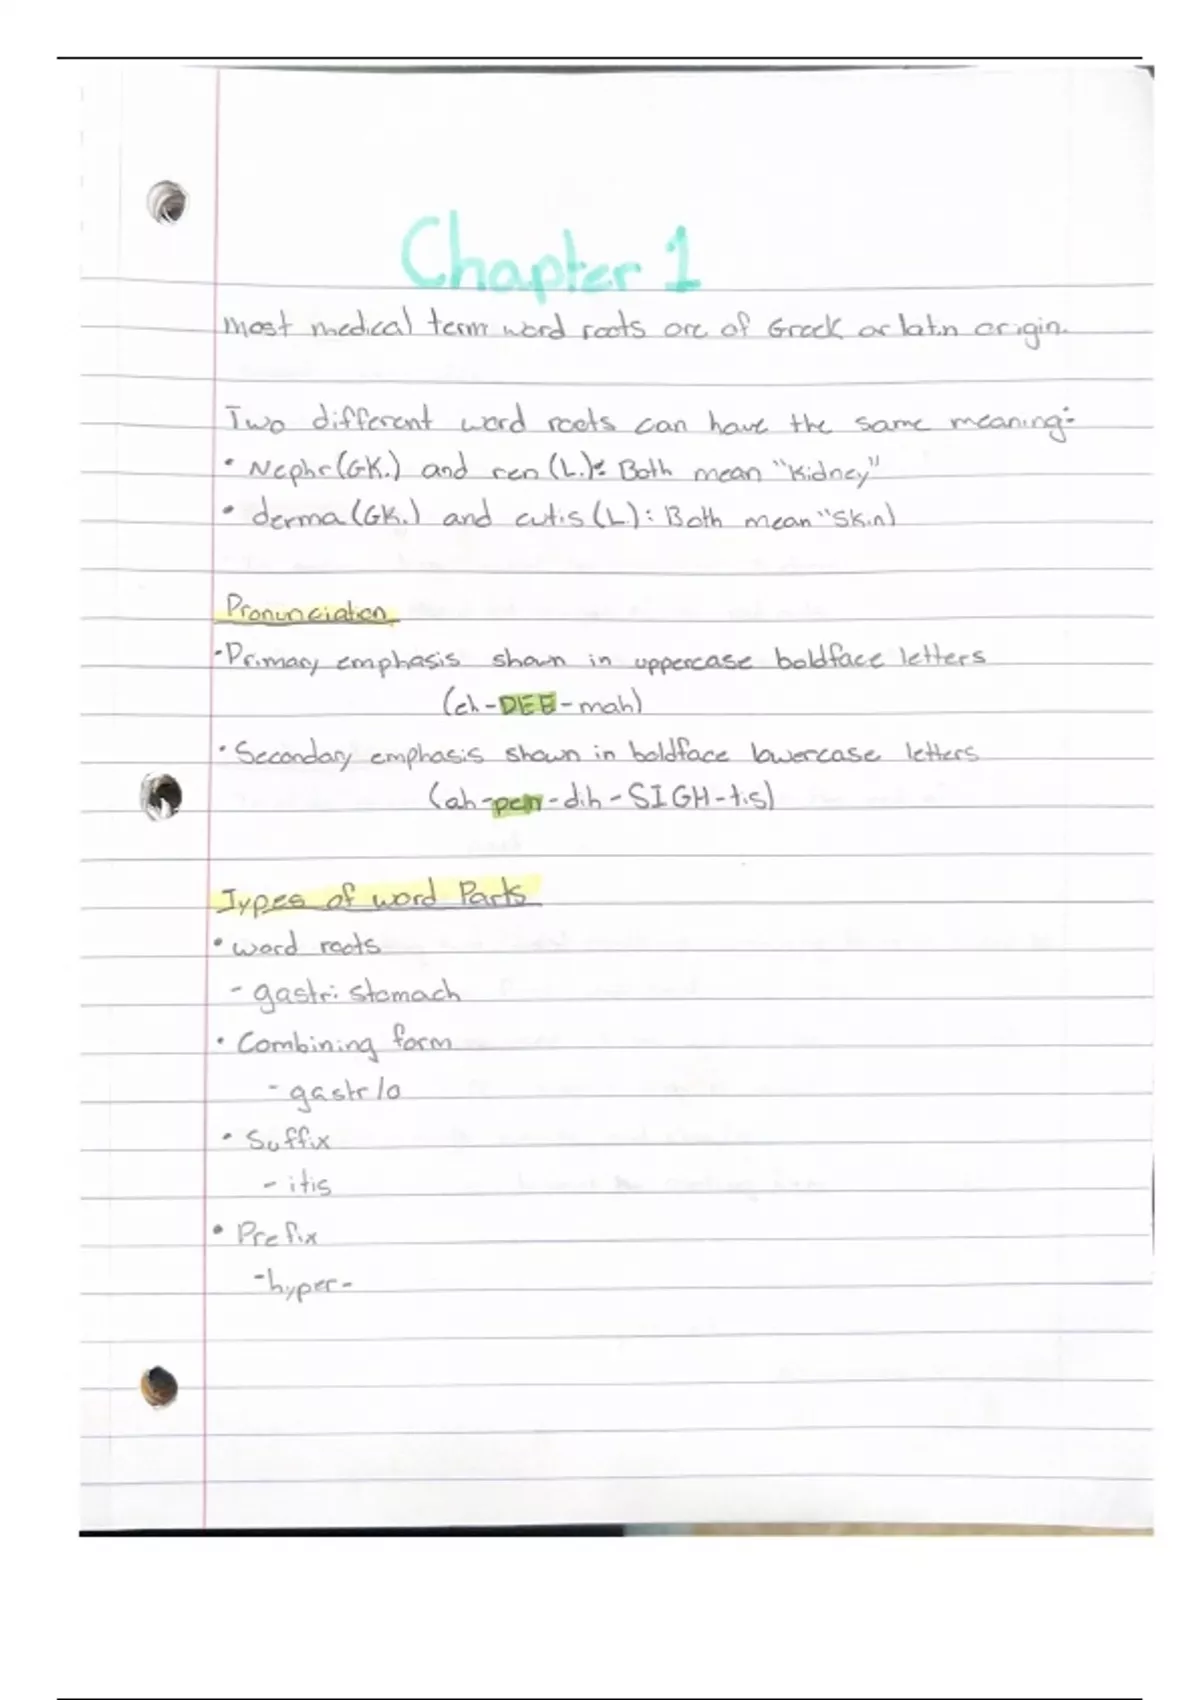 Chapter 1
Most medical term word roots are of Greek or latin origin.
Two different word roots can have the same meaning:
• Nephr (GK.) and ren (L.): Both mean "Kidney"
• derma (GK.) and cutis (L.): Both mean "Skin)
Pronunciation
• Primary emphasis shown in uppercase boldface letters
(eh-DEE-mah)
• Secondary emphasis shown in boldface lowercase letters
(ah-pen-dih-SIGH-tis)
Types of word Parts
• word roots
- gastr: stomach
• Combining form
- gastr/o
• Suffix
- itis
• Prefix
-hyper-